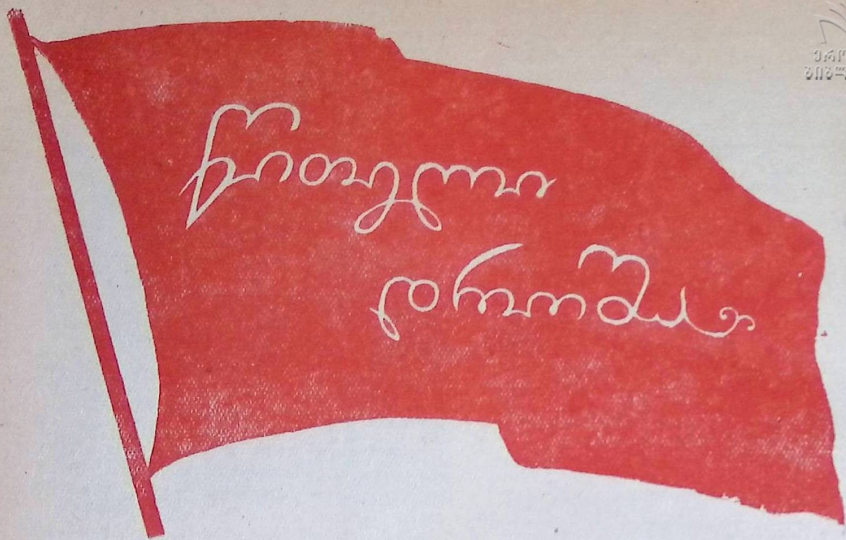 წითელი
დროშა